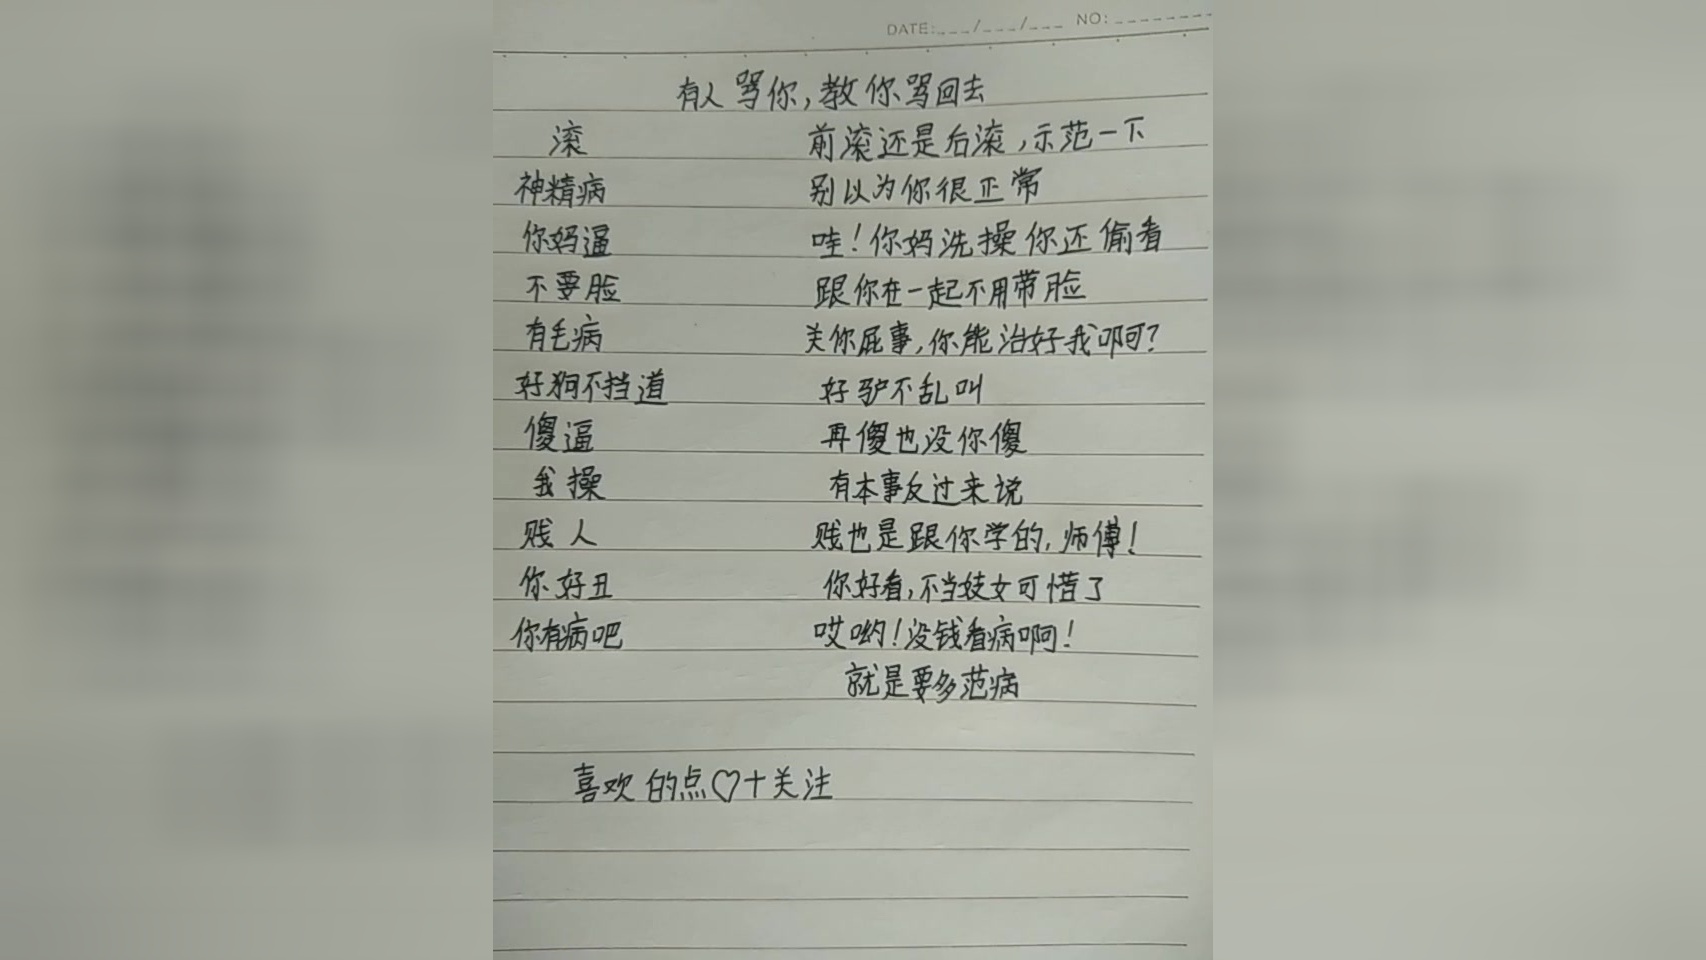 DATE:___/___/___ NO:________
有人骂你,教你骂回去
滚 前滚还是后滚,示范一下
神精病 别以为你很正常
你妈逼 哇!你妈洗操你还偷看
不要脸 跟你在一起不用带脸
有毛病 关你屁事,你能治好我啊?
好狗不挡道 好驴不乱叫
傻逼 再傻也没你傻
我操 有本事反过来说
贱人 贱也是跟你学的,师傅!
你好丑 你好看,不当妓女可惜了
你有病吧 哎哟!没钱看病啊!
就是要多范病
喜欢的点♡+关注